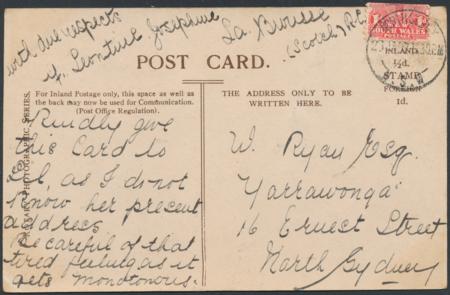 with due respects
Josephine
La Brousse
(Scotch) R.C.
POST CARD.
SOUTH WALES
INLAND
½d.
STAMP
FOREIGN
1d.
For Inland Postage only, this space as well as
the back may now be used for Communication.
(Post Office Regulation).
THE ADDRESS ONLY TO BE
WRITTEN HERE.
ROTARY PHOTOGRAPHIC SERIES.
Kindly give
this Card to
as I do not
know her present
address
Be careful of that
tired feeling as it
gets monotonous.
W. Ryan Esq.
"Yarrawonga"
16 Ernest Street
North Sydney